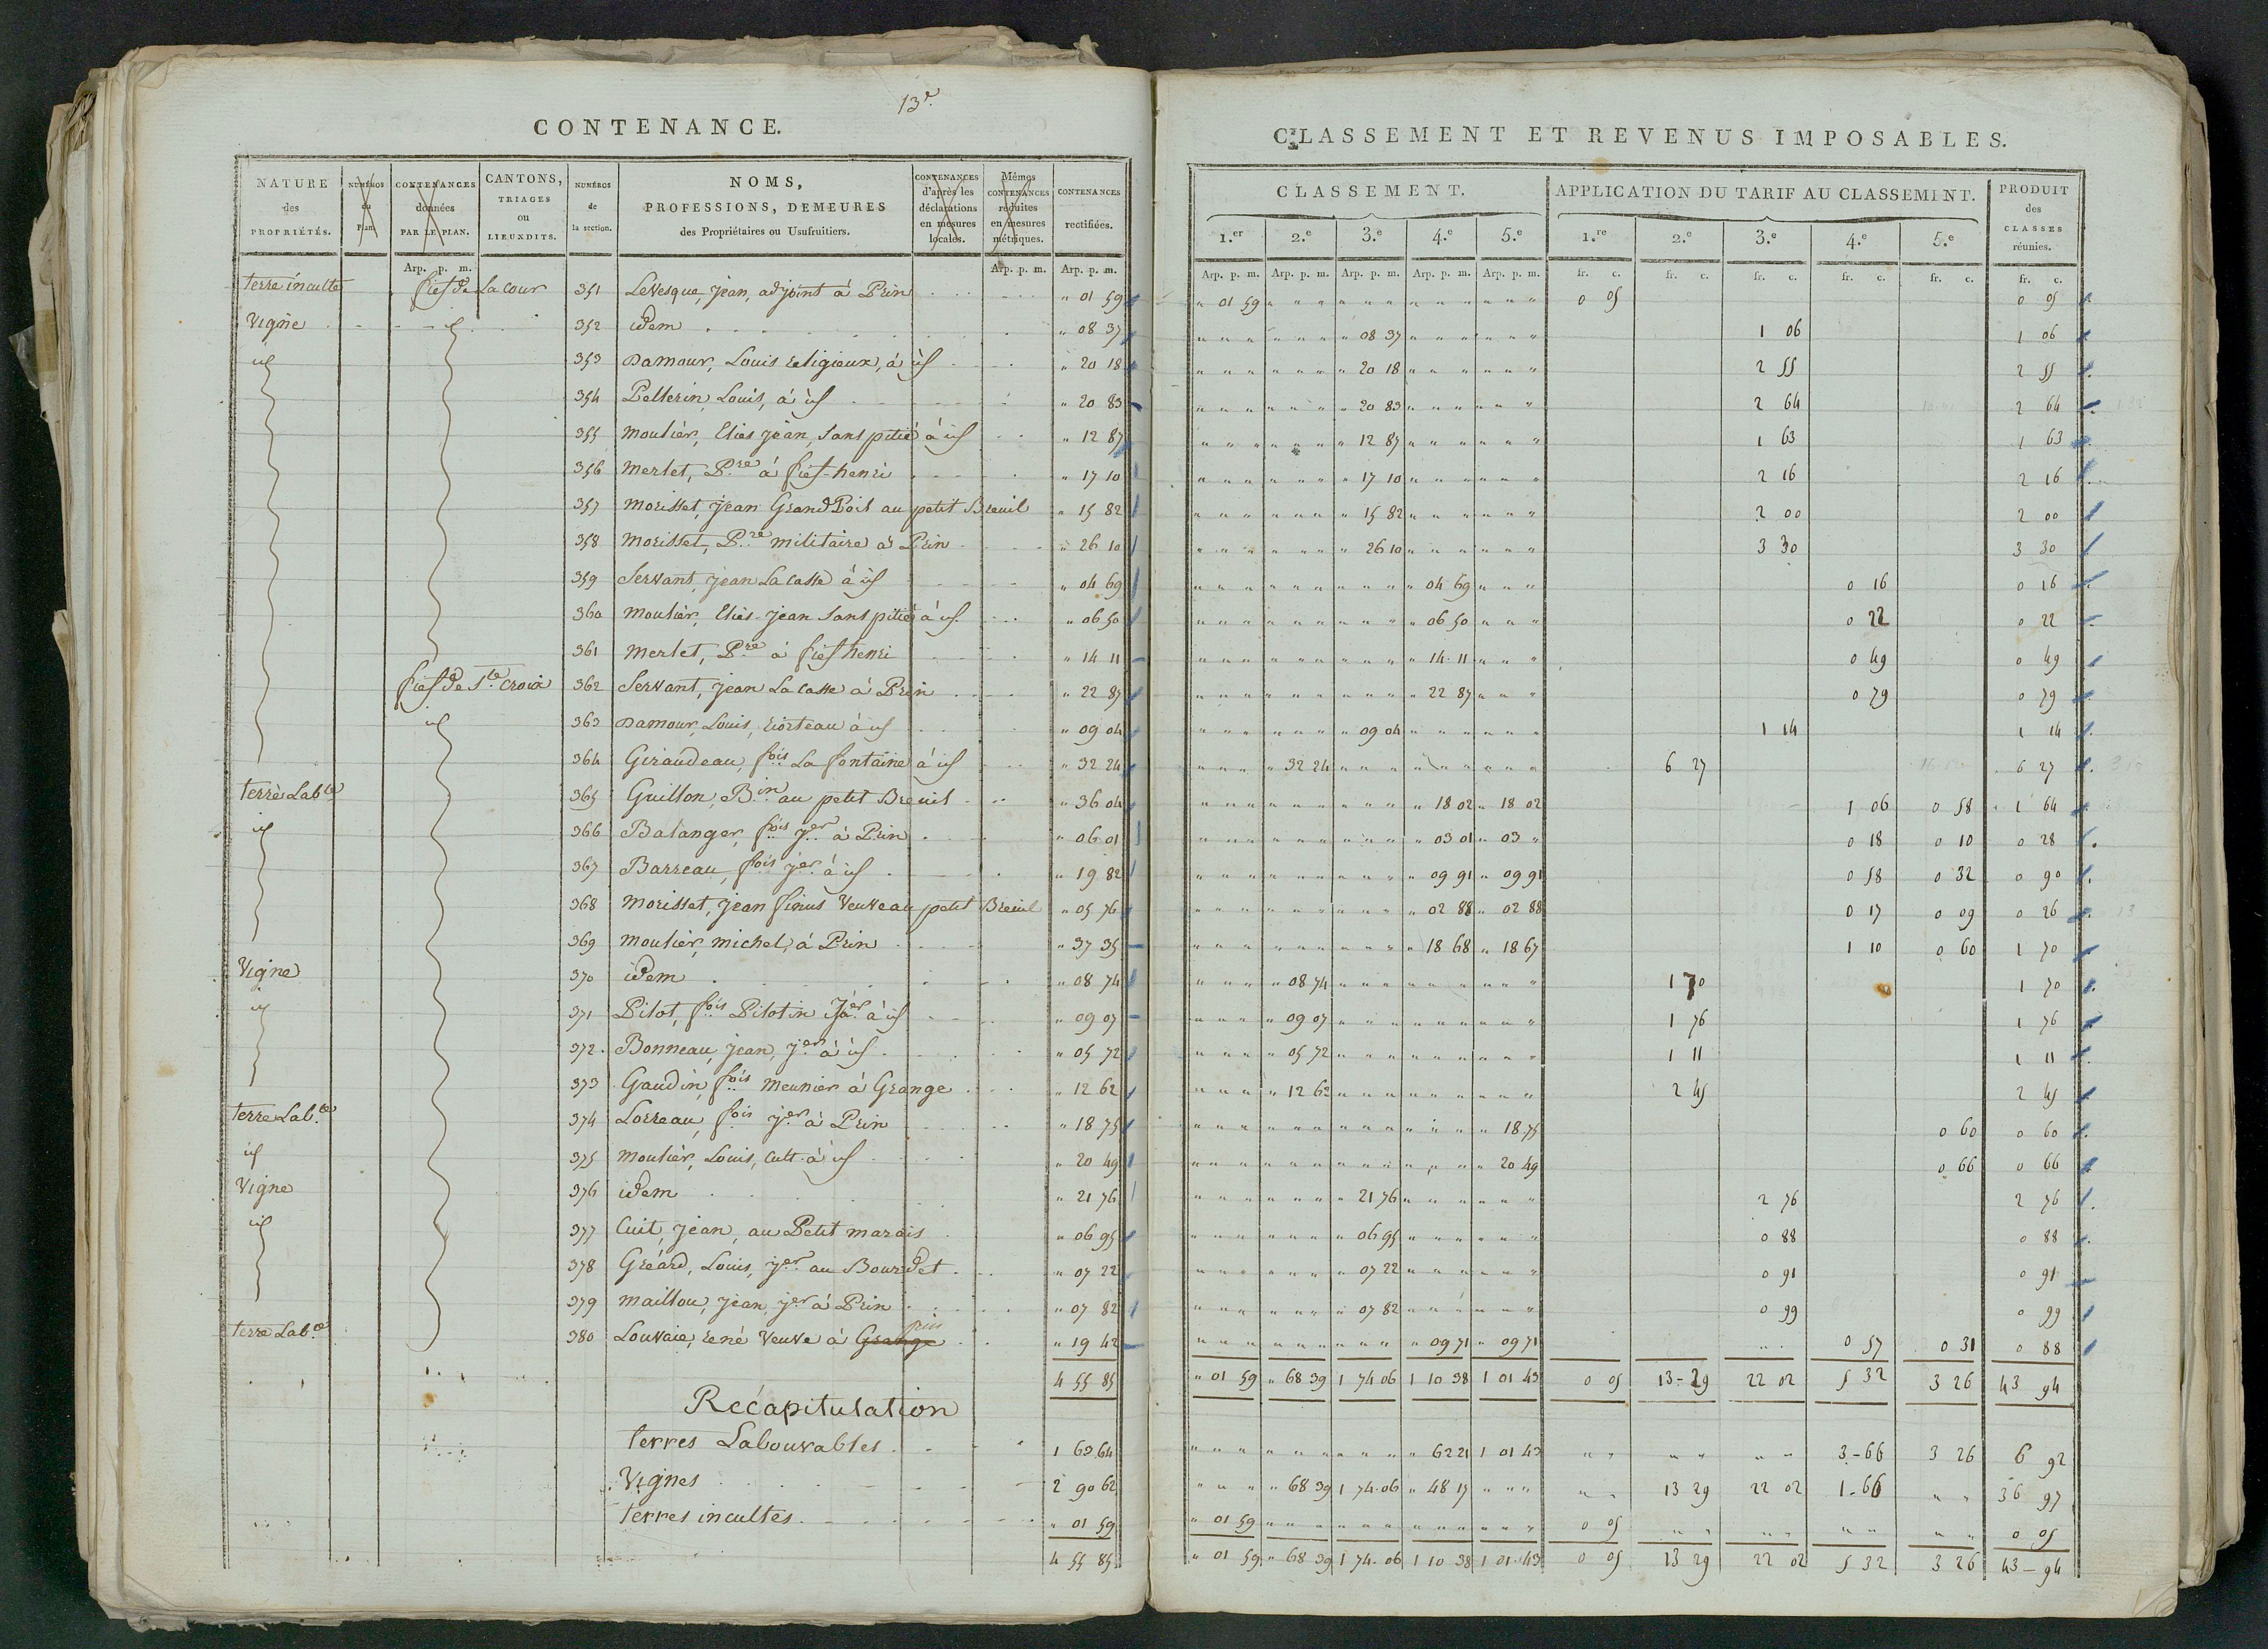 13e.
CONTENANCE.
NATURE des PROPRIÉTÉS. | NUMÉROS du Plan. | CONTENANCES données PAR LE PLAN. | CANTONS, TRIAGES ou LIEUXDITS. | NUMÉROS de la section. | NOMS, PROFESSIONS, DEMEURES des Propriétaires ou Usufruitiers. | CONTENANCES d'après les déclarations en mesures locales. | Mêmes CONTENANCES réduites en mesures métriques. | CONTENANCES rectifiées.
Arp. p. m. | Arp. p. m. | Arp. p. m.
terre inculte | fief de La cour | 351 | LeVesque, jean, adjoint à Prin | " 01 59
Vigne | id | 352 | idem | " 08 37
id | 353 | Damour, Louis Religieux, à id | " 20 18
354 | Pellerin, Louis, à id | " 20 83
355 | moulièr, Elies jean, Sans pitié à id | " 12 87
356 | merlet, P.re à fief-henri | " 17 10
357 | morisset, jean Grand Poil au petit Breuil | " 15 82
358 | morisset, P.re militaire à Prin | " 26 10
359 | Servant, jean La casse à id | " 04 69
360 | moulièr, Eliès-jean Sans pitié à id | " 06 50
361 | merlet, P.re à fief henri | " 14 11
fief de S.te Croix | 362 | Servant, jean La casse à Prin | " 22 87
id | 363 | Damour, Louis, riorteau à id | " 09 04
364 | Giraudeau, fois La fontaine à id | " 32 24
terre Lab.le | 365 | Guillon, B.in au petit Breuil | " 36 04
id | 366 | Balanger, fois jer à Prin | " 06 01
367 | Barreau, fois jer à id | " 19 82
368 | morisset, jean finus Veuve au petit Breuil | " 05 76
369 | moulièr, michel, à Prin | " 37 35
Vigne | 370 | idem | " 08 74
id | 371 | Pilot, fois Pilotin jer à id | " 09 07
372. | Bonneau, jean, jer à id | " 05 72
373 | Gaudin, fois meunier à Grange | " 12 62
terre Lab.le | 374 | Lorreau, fois jer à Prin | " 18 75
id | 375 | moulièr, Louis, Cult. à id | " 20 49
Vigne | 376 | idem | " 21 76
id | 377 | Cuit, jean, au Petit marais | " 06 95
378 | Gréard, Louis, jer au Bourdet | " 07 22
379 | maillou, jean, jer à Prin | " 07 82
terre Lab.le | 380 | Louvaie, René Veuve à Grange prin | " 19 42
4 55 85
Récapitulation
terres Labourables | 1 63 64
Vignes | 2 90 62
terres incultes | " 01 59
4 55 85
CLASSEMENT ET REVENUS IMPOSABLES.
CLASSEMENT. | APPLICATION DU TARIF AU CLASSEMENT. | PRODUIT des CLASSES réunies.
1.er | 2.e | 3.e | 4.e | 5.e | 1.re | 2.e | 3.e | 4.e | 5.e
Arp. p. m. | Arp. p. m. | Arp. p. m. | Arp. p. m. | Arp. p. m. | fr. c. | fr. c. | fr. c. | fr. c. | fr. c. | fr. c.
" 01 59 | " " " | " " " | " " " | " " " | 0 05 | 0 05
" " " | " " " | " 08 37 | " " " | " " " | 1 06 | 1 06
" " " | " " " | " 20 18 | " " " | " " " | 2 55 | 2 55
" " " | " " " | " 20 83 | " " " | " " " | 2 64 | 2 64
" " " | " " " | " 12 87 | " " " | " " " | 1 63 | 1 63
" " " | " " " | " 17 10 | " " " | " " " | 2 16 | 2 16
" " " | " " " | " 15 82 | " " " | " " " | 2 00 | 2 00
" " " | " " " | " 26 10 | " " " | " " " | 3 30 | 3 30
" " " | " " " | " " " | " 04 69 | " " " | 0 16 | 0 16
" " " | " " " | " " " | " 06 50 | " " " | 0 22 | 0 22
" " " | " " " | " " " | " 14 11 | " " " | 0 49 | 0 49
" " " | " " " | " " " | " 22 87 | " " " | 0 79 | 0 79
" " " | " " " | " 09 04 | " " " | " " " | 1 14 | 1 14
" " " | " 32 24 | " " " | " " " | " " " | 6 27 | 6 27
" " " | " " " | " " " | " 18 02 | " 18 02 | 1 06 | 0 58 | 1 64
" " " | " " " | " " " | " 03 01 | " 03 " | 0 18 | 0 10 | 0 28
" " " | " " " | " " " | " 09 91 | " 09 91 | 0 58 | 0 32 | 0 90
" " " | " " " | " " " | " 02 88 | " 02 88 | 0 17 | 0 09 | 0 26
" " " | " " " | " " " | " 18 68 | " 18 67 | 1 10 | 0 60 | 1 70
" " " | " 08 74 | " " " | " " " | " " " | 1 70 | 1 70
" " " | " 09 07 | " " " | " " " | " " " | 1 76 | 1 76
" " " | " 05 72 | " " " | " " " | " " " | 1 11 | 1 11
" " " | " 12 62 | " " " | " " " | " " " | 2 45 | 2 45
" " " | " " " | " " " | " " " | " 18 75 | 0 60 | 0 60
" " " | " " " | " " " | " " " | " 20 49 | 0 66 | 0 66
" " " | " " " | " 21 76 | " " " | " " " | 2 76 | 2 76
" " " | " " " | " 06 95 | " " " | " " " | 0 88 | 0 88
" " " | " " " | " 07 22 | " " " | " " " | 0 91 | 0 91
" " " | " " " | " 07 82 | " " " | " " " | 0 99 | 0 99
" " " | " " " | " " " | " 09 71 | " 09 71 | 0 57 | 0 31 | 0 88
" 01 59 | " 68 39 | 1 74 06 | 1 10 38 | 1 01 43 | 0 05 | 13-29 | 22 02 | 5 32 | 3 26 | 43 94
" " " | " " " | " " " | " 62 21 | 1 01 43 | " " | " " | " " | 3-66 | 3 26 | 6 92
" " " | " 68 39 | 1 74.06 | " 48 17 | " " " | " " | 13 29 | 22 02 | 1-66 | " " | 36 97
" 01 59 | " " " | " " " | " " " | " " " | 0 05 | " " | " " | " " | " " | 0 05
" 01 59 | " 68 39 | 1 74.06 | 1 10 38 | 1 01 43 | 0 05 | 13 29 | 22 02 | 5 32 | 3 26 | 43-94